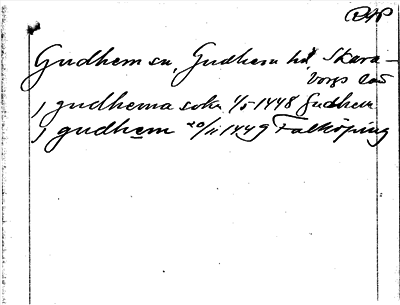 DAP
Gudhem sn, Gudhem hd, Skara-
borgs län
j gudhema sokn 1/5 1448 Gudhem
j gudhem 20/11 1449 Falköping